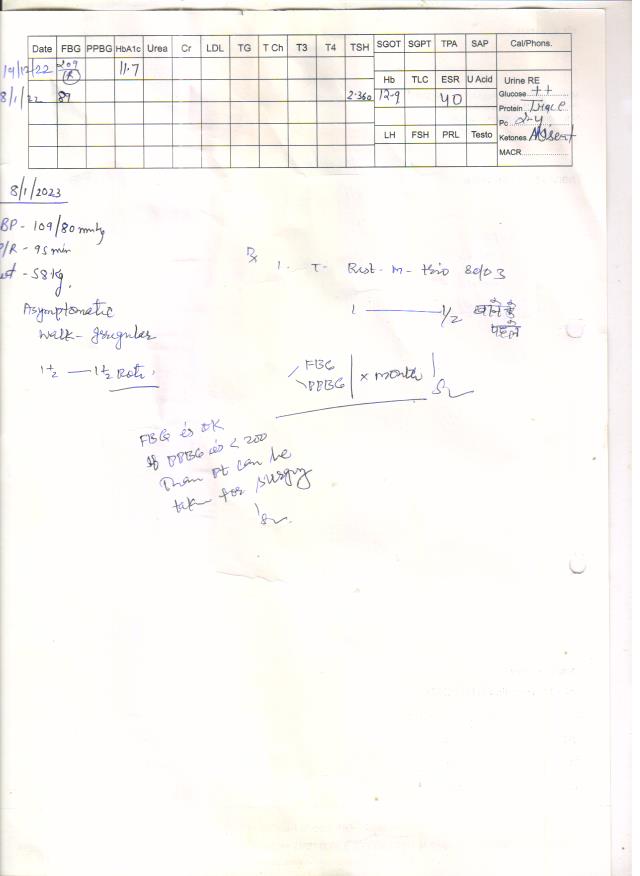 Date FBG PPBG HbA1c Urea Cr LDL TG T Ch T3 T4 TSH SGOT SGPT TPA SAP Cal/Phons.
19/12/22 209 11.7
Hb TLC ESR U Acid Urine RE
8/1/22 89 2.360 12.9 40 Glucose ++
Protein Trace
Pc 2-4
LH FSH PRL Testo Ketones Absent
MACR
8/1/2023
BP - 109/80 mmhg
P/R - 95 min
- 58 kg.
Asymptomatic
Walk - Irregular
1½ — 1½ Roti
Rx 1. T-
1 — 1/2 खाने से
पहले
FBG
PPBG x month
FBG is OK
If PPBG is < 200
Then Pt can be
taken for surgery